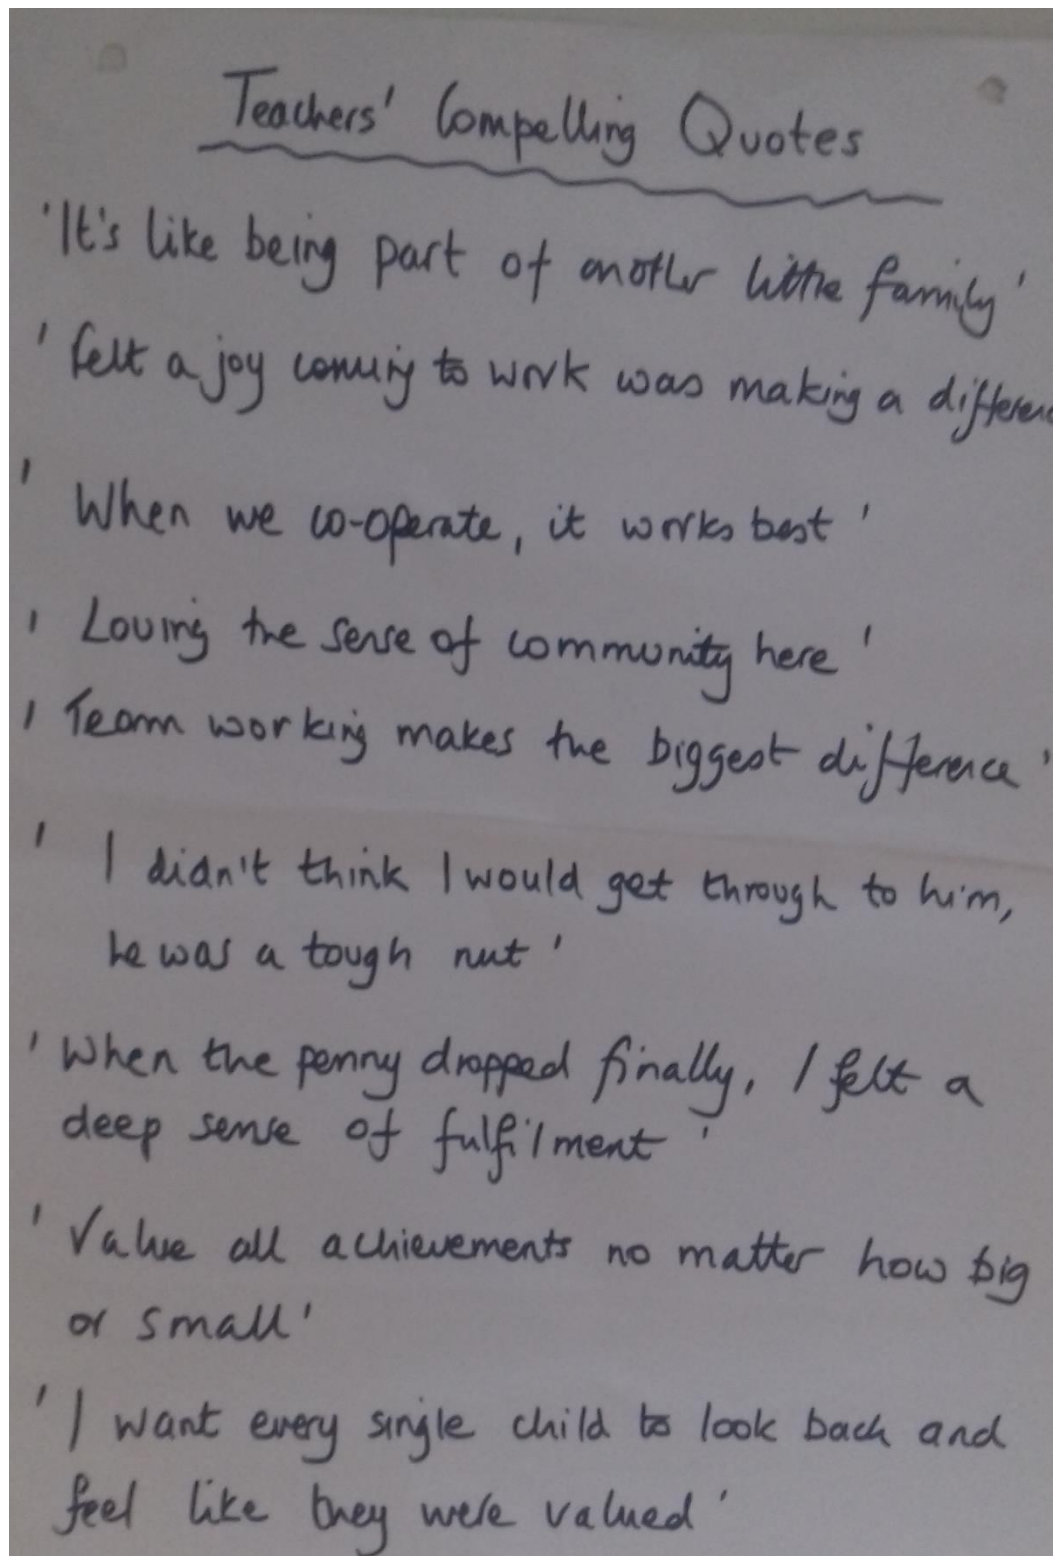 Teachers' Compelling Quotes
'It's like being part of another little family'
'felt a joy coming to work was making a differenc
'When we co-operate, it works best'
'Loving the sense of community here'
'Team working makes the biggest difference'
'I didn't think I would get through to him,
he was a tough nut'
'When the penny dropped finally, I felt a
deep sense of fulfilment'
'Value all achievements no matter how big
or small'
'I want every single child to look back and
feel like they were valued'